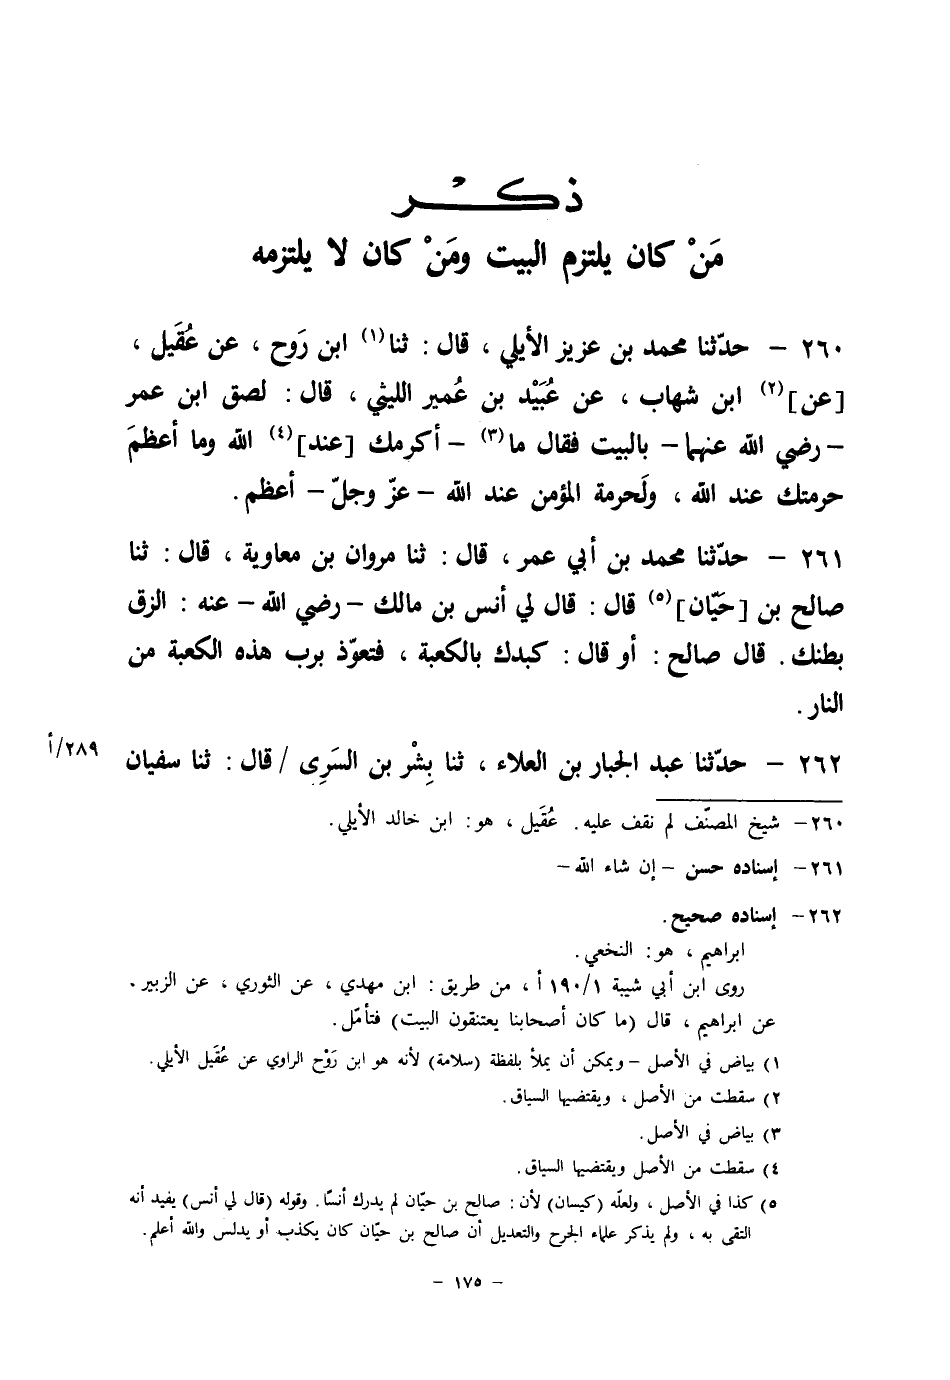 ذكْر
مَنْ كان يلتزم البيت ومَنْ كان لا يلتزمه
٢٦٠ - حدّثنا محمد بن عزيز الأيلي ، قال : ثنا(١) ابن رَوح ، عن عُقَيل ،
[عن](٢) ابن شهاب ، عن عُبَيْد بن عُمير الليثي ، قال : لصق ابن عمر
- رضي الله عنهما - بالبيت فقال ما(٣) - أكرمك [عند](٤) الله وما أعظمَ
حرمتك عند الله ، ولَحرمة المؤمن عند الله - عزّ وجلّ - أعظم .
٢٦١ - حدّثنا محمد بن أبي عمر ، قال : ثنا مروان بن معاوية ، قال : ثنا
صالح بن [حَيّان](٥) قال : قال لي أنس بن مالك - رضي الله - عنه : الزق
بطنك . قال صالح : أو قال : كبدك بالكعبة ، فتعوّذ برب هذه الكعبة من
النار .
٢٦٢ - حدّثنا عبد الجبار بن العلاء ، ثنا بِشْر بن السَرِى / قال : ثنا سفيان
٢٨٩/أ
٢٦٠ - شيخ المصنّف لم نقف عليه . عُقَيل ، هو : ابن خالد الأيلي .
٢٦١ - إسناده حسن - إن شاء الله -
٢٦٢ - إسناده صحيح .
ابراهيم ، هو : النخعي .
روى ابن أبي شيبة ١٩٠/١ أ ، من طريق : ابن مهدي ، عن الثوري ، عن الزبير .
عن ابراهيم ، قال (ما كان أصحابنا يعتنقون البيت) فتأمّل .
١) بياض في الأصل - ويمكن أن يملأ بلفظة (سلامة) لأنه هو ابن رَوْح الراوي عن عُقَيل الأيلي .
٢) سقطت من الأصل ، ويقتضيها السياق .
٣) بياض في الأصل .
٤) سقطت من الأصل ويقتضيها السياق .
٥) كذا في الأصل ، ولعلّه (كيسان) لأن : صالح بن حيّان لم يدرك أنسًا . وقوله (قال لي أنس) يفيد أنه
التقى به ، ولم يذكر علماء الجرح والتعديل أن صالح بن حيّان كان يكذب أو يدلس والله أعلم .
- ١٧٥ -